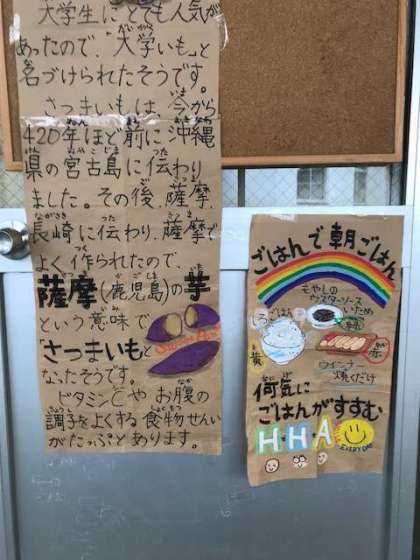 大学生にとても人気が
あったので、「大学いも」と
名づけられたそうです。
さつまいもは、今から
420年ほど前に沖縄
県の宮古島に伝わり
ました。その後、薩摩、
長崎に伝わり、薩摩で
よく作られたので、
薩摩(鹿児島)の芋
という意味で
「さつまいも」と
なったそうです。
ビタミンCや お腹の
調子をよくする食物せんい
がたっぷとあります。
ごはんで朝ごはん
もやしの
ウスターソース
いため
しろごはん
緑
黄
赤
ウインナー
焼くだけ
何気に
ごはんがすすむ
H・H・A
EVERYDAY